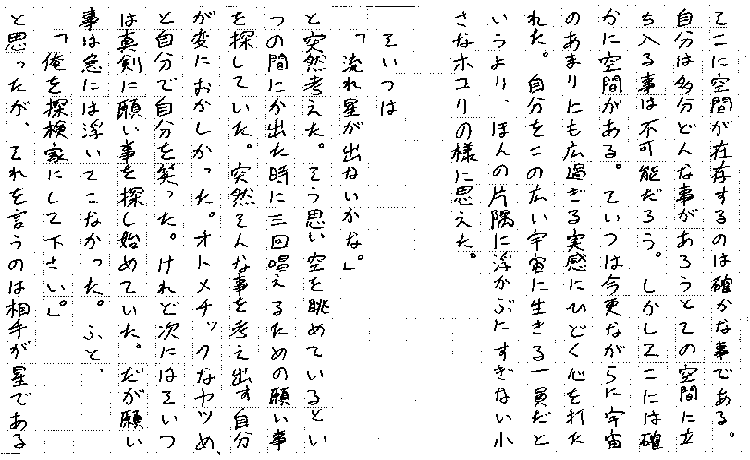 そこに空間が存在するのは確かな事である。
自分は多分どんな事があろうとその空間に立
ち入る事は不可能だろう。しかしそこには確
かに空間がある。そいつは今更ながらに宇宙
のあまりにも広過ぎる実感にひどく心を打た
れた。自分をこの広い宇宙に生きる一員だと
いうより、ほんの片隅に浮かぶにすぎない小
さなホコリの様に思えた。
そいつは
「流れ星が出ないかな。」
と突然考えた。そう思い空を眺めているとい
つの間にか出た時に三回唱えるための願い事
を探していた。突然そんな事を考え出す自分
が変におかしかった。オトメチックなヤツめ、
と自分で自分を笑った。けれど次にはそいつ
は真剣に願い事を探し始めていた。だが願い
事は急には浮いてこなかった。ふと、
「俺を探検家にして下さい。」
と思ったが、それを言うのは相手が星である